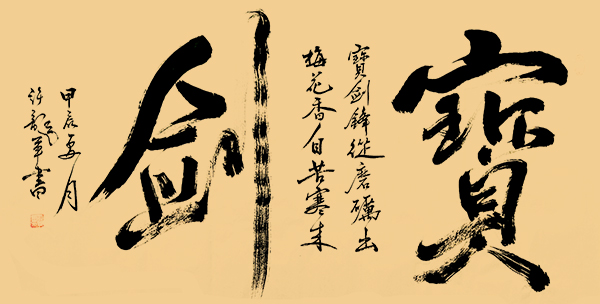 寶
寶劍鋒從磨礪出
梅花香自苦寒來
劍
甲辰夏月
許軍書